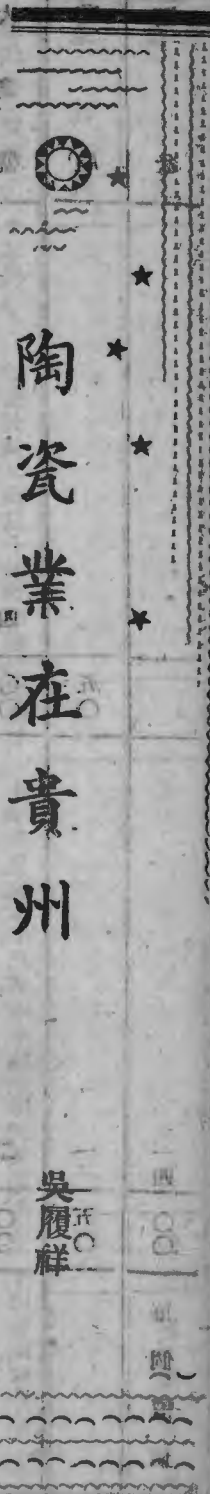 陶瓷業在貴州
吳履祥